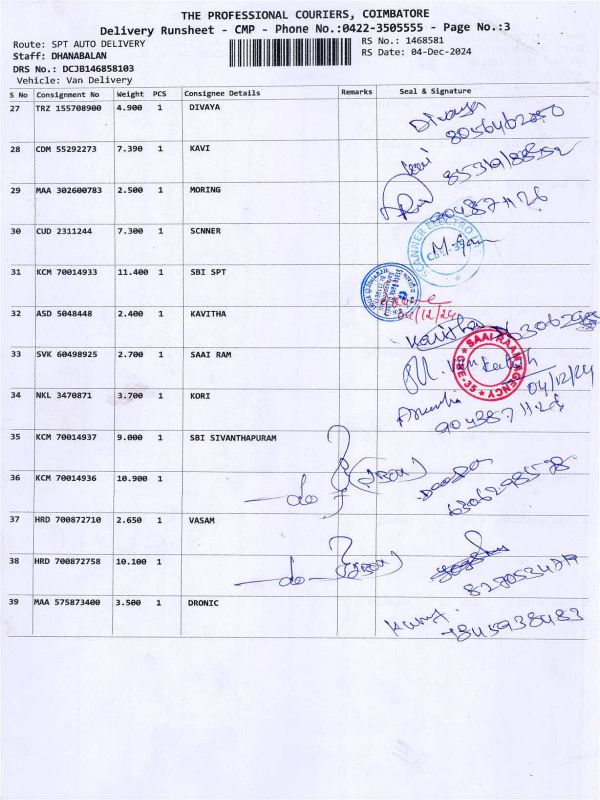 THE PROFESSIONAL COURIERS, COIMBATORE
Delivery Runsheet - CMP - Phone No.:0422-3505555 - Page No.:3
Route: SPT AUTO DELIVERY
RS No.: 1468581
Staff: DHANABALAN
RS Date: 04-Dec-2024
DRS No.: DCJB146858103
Vehicle: Van Delivery
S No Consignment No Weight PCS Consignee Details Remarks Seal & Signature
27 TRZ 155708900 4.900 1 DIVAYA Divaya
28 CDM 55292273 7.390 1 KAVI
29 MAA 302600783 2.500 1 MORING
30 CUD 2311244 7.300 1 SCNNER
31 KCM 70014933 11.400 1 SBI SPT
04/12/24
32 ASD 5048448 2.400 1 KAVITHA Kavitha
33 SVK 60498925 2.700 1 SAAI RAM
SAAI RAAM AGENCY
CBE-35
04/12/24
34 NKL 3470871 3.700 1 KORI
9043871126
35 KCM 70014937 9.000 1 SBI SIVANTHAPURAM
36 KCM 70014936 10.900 1 -do-
37 HRD 700872710 2.650 1 VASAM
38 HRD 700872758 10.100 1 -do-
39 MAA 575873400 3.500 1 DRONIC